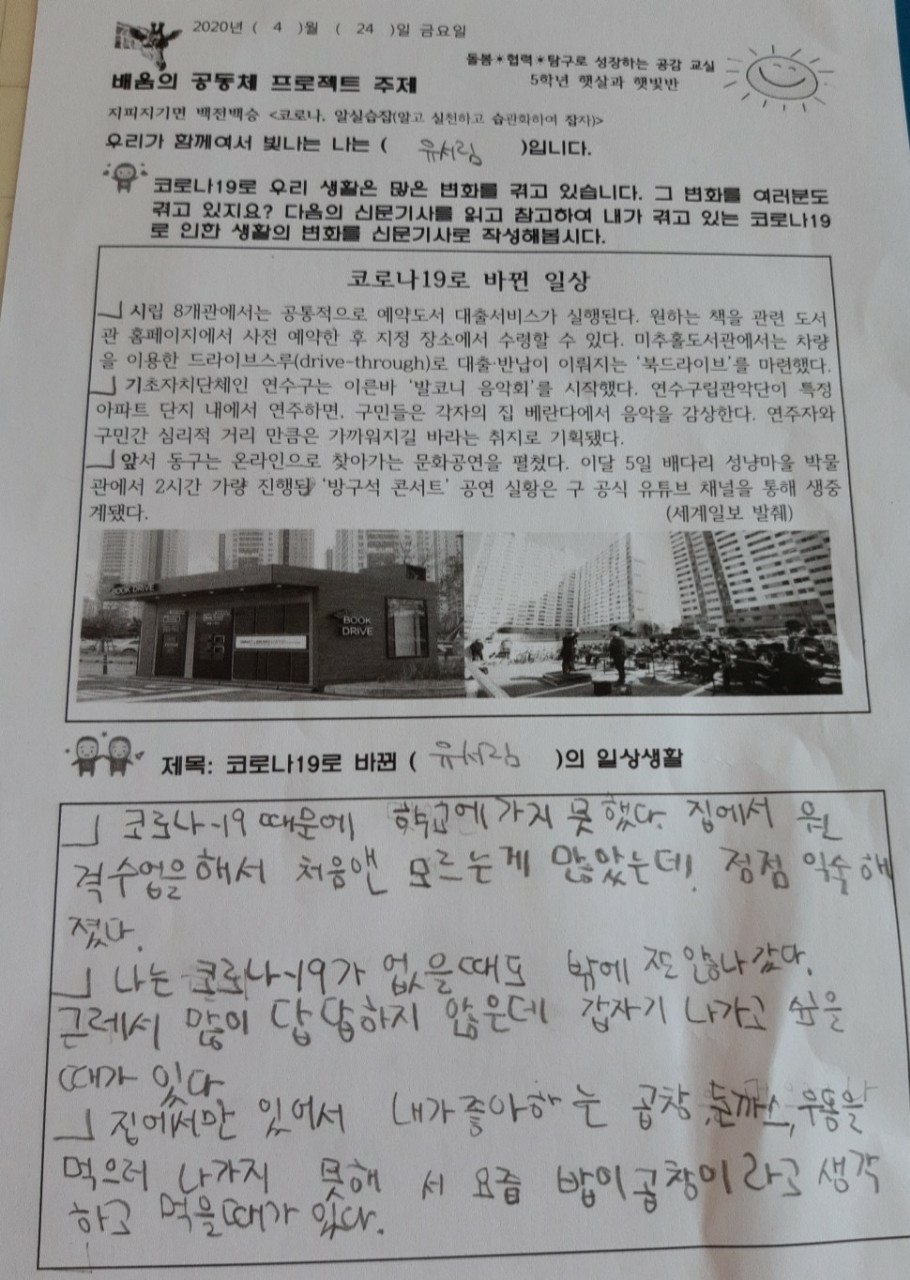 2020년 ( 4 )월 ( 24 )일 금요일
돌봄*협력*탐구로 성장하는 공감 교실
배움의 공동체 프로젝트 주제
5학년 햇살과 햇빛반
지피지기면 백전백승 <코로나, 알실습잡(알고 실천하고 습관화하여 잡자)>
우리가 함께여서 빛나는 나는 ( 유서림 )입니다.
코로나19로 우리 생활은 많은 변화를 겪고 있습니다. 그 변화를 여러분도
겪고 있지요? 다음의 신문기사를 읽고 참고하여 내가 겪고 있는 코로나19
로 인한 생활의 변화를 신문기사로 작성해봅시다.
코로나19로 바뀐 일상
시립 8개관에서는 공통적으로 예약도서 대출서비스가 실행된다. 원하는 책을 관련 도서
관 홈페이지에서 사전 예약한 후 지정 장소에서 수령할 수 있다. 미추홀도서관에서는 차량
을 이용한 드라이브스루(drive-through)로 대출·반납이 이뤄지는 '북드라이브'를 마련했다.
기초자치단체인 연수구는 이른바 '발코니 음악회'를 시작했다. 연수구립관악단이 특정
아파트 단지 내에서 연주하면, 구민들은 각자의 집 베란다에서 음악을 감상한다. 연주자와
구민간 심리적 거리 만큼은 가까워지길 바라는 취지로 기획됐다.
앞서 동구는 온라인으로 찾아가는 문화공연을 펼쳤다. 이달 5일 배다리 성냥마을 박물
관에서 2시간 가량 진행된 '방구석 콘서트' 공연 실황은 구 공식 유튜브 채널을 통해 생중
계됐다. (세계일보 발췌)
BOOK DRIVE
BOOK
DRIVE
제목: 코로나19로 바뀐 ( 유서림 )의 일상생활
코로나-19 때문에 학교에 가지 못했다. 집에서 원
격수업을해서 처음앤 모르는게 많았는데, 정점 익술해
졌다.
나는 코로나-19가 없을때도 밖에 잔 않나갔다.
근레서 많이 답답하지 않은데 갑자기 나가고 싶을
때가 있다
집에서만 있어서 내가좋아하는 곱창,돈까스,우동을
먹으러 나가지 못해서 요즙 밥이곱창이라고 생각
하고 먹을때가 있다.